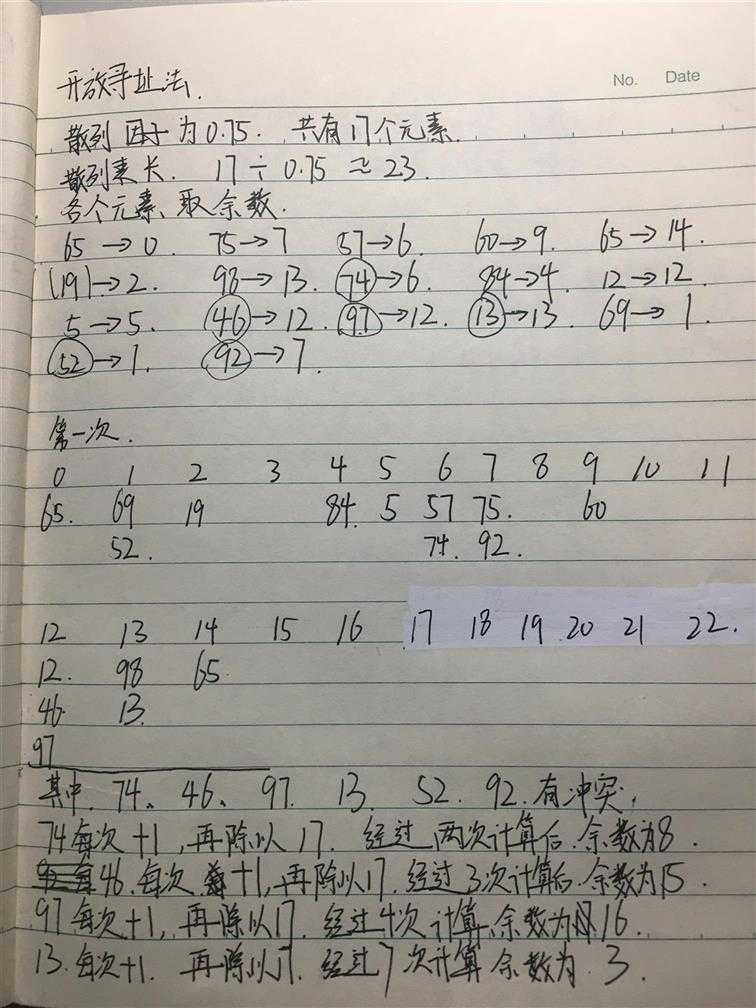 开放寻址法.
No. Date
散列因子为0.75. 共有17个元素.
散列表长. 17÷0.75≈23.
各个元素取余数.
65→0. 75→7 57→6. 60→9. 65→14.
(19)→2. 98→13. 74→6. 84→4. 12→12.
5→5. 46→12. 97→12. 13→13. 69→1.
52→1. 92→7.
第一次.
0 1 2 3 4 5 6 7 8 9 10 11
65. 69 19 84. 5 57 75. 60
52. 74. 92.
12 13 14 15 16 17 18 19 20 21 22.
12. 98 65.
46. 13.
97
其中. 74、46、97. 13. 52. 92. 有冲突,
74每次+1, 再除以17. 经过两次计算后.余数为8.
46.每次+1,再除以17.经过3次计算后.余数为15.
97每次+1,再除以17.经过4次计算,余数为16.
13.每次+1. 再除以17. 经过7次计算 余数为.3.